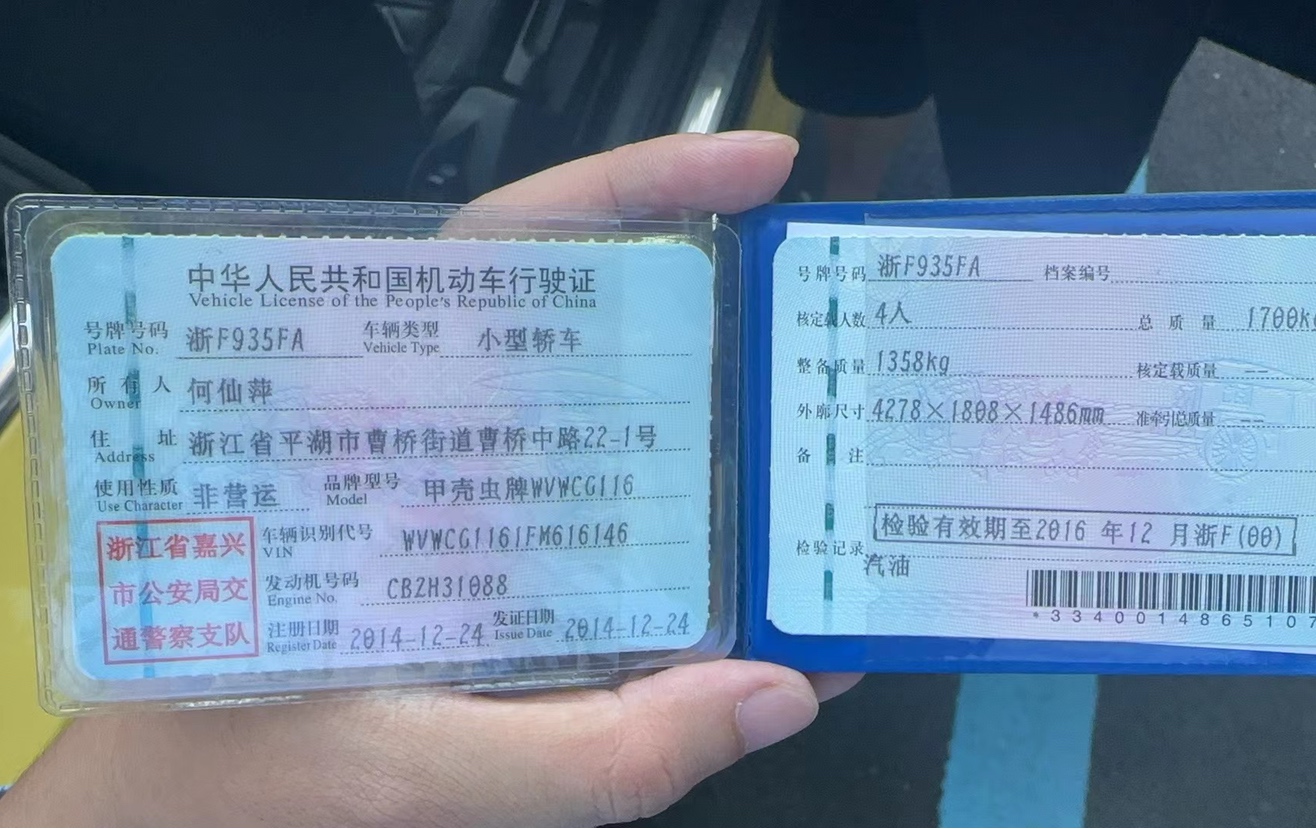 中华人民共和国机动车行驶证
Vehicle License of the People's Republic of China
号牌号码 浙F935FA 车辆类型 小型轿车
Plate No. Vehicle Type
所有人 何仙萍
Owner
住址 浙江省平湖市曹桥街道曹桥中路22-1号
Address
使用性质 非营运 品牌型号 甲壳虫牌WVWCG116
Use Character Model
浙江省嘉兴
市公安局交
通警察支队
车辆识别代号 WVWCG1161FM616146
VIN
发动机号码 CBZH31088
Engine No.
注册日期 2014-12-24 发证日期 2014-12-24
Register Date Issue Date
号牌号码 浙F935FA 档案编号
核定载人数 4人 总质量
整备质量 1358kg 核定载质量 --
外廓尺寸 4278×1808×1486mm 准牵引总质量 --
备注
检验有效期至2016 年12 月浙F(00)
检验记录
汽油